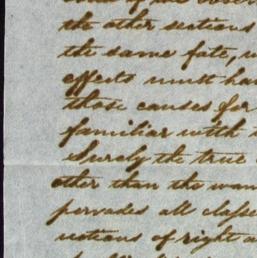 the other sections
the same fate,
effects must
those causes for
familiar with
Surely the true
other than the
pervades all
of right